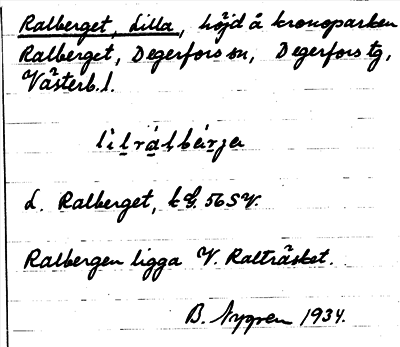 Ralberget, Lilla, höjd å kronoparken
Ralberget, Degerfors sn, Degerfors tg,
Västerb. l.
lìlrálbärjer
L. Ralberget, k G. 56 SV.
Ralbergen ligga V. Ralträsket.
B. Nygren 1934.